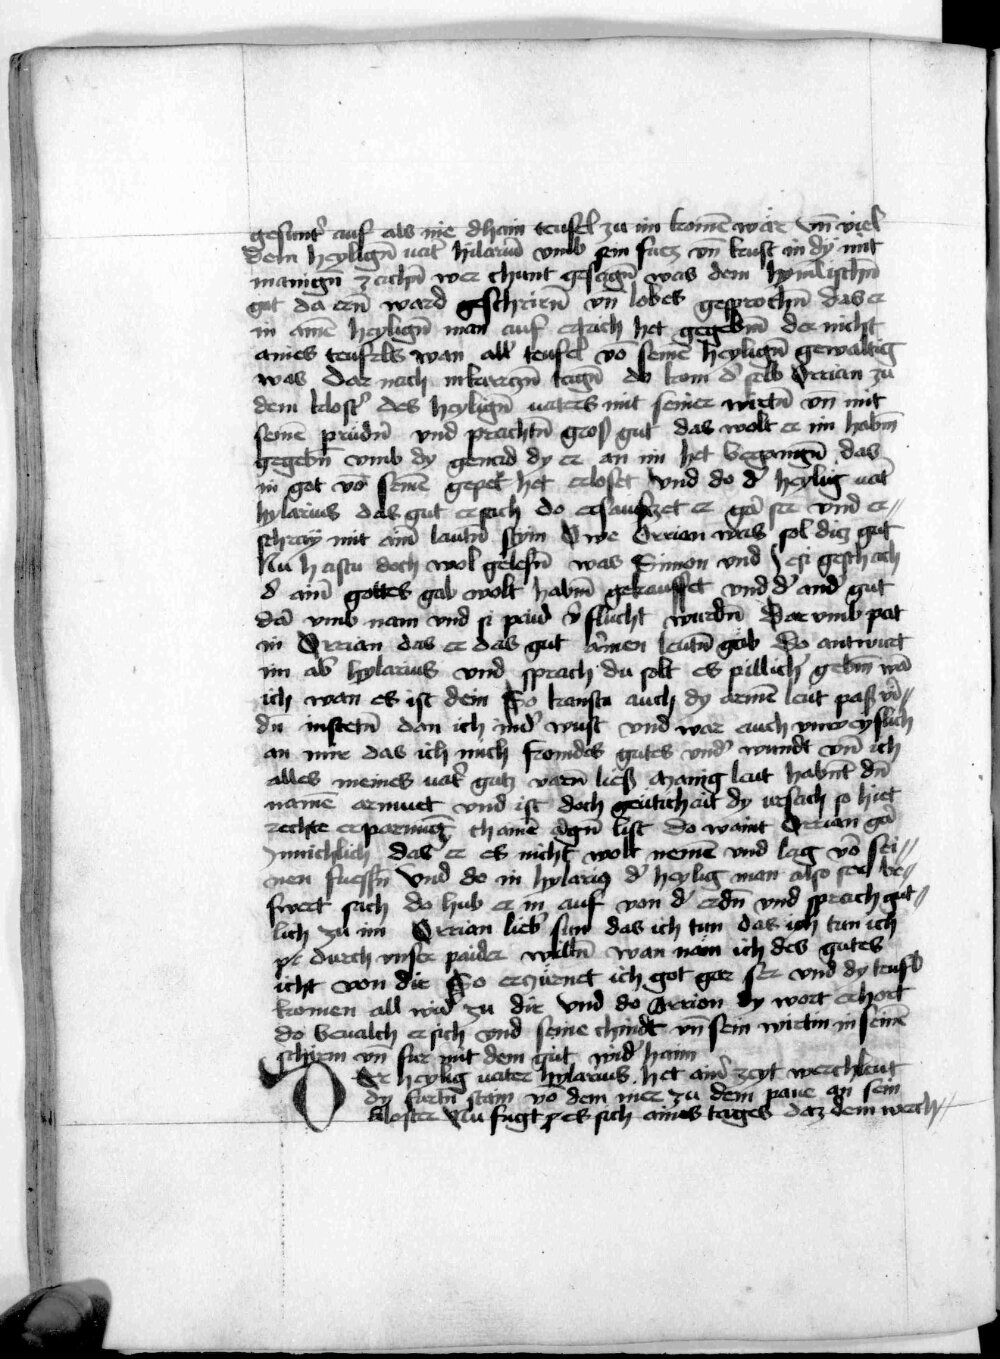 gesunt' auf als nie dhain teufel zu im komē wär vn̄ viel
dem heyligñ uat' hilariū vmb sein fuez vn̄ kust in dy mit
manigñ zachñ wer chunt gesagñ was dem hymlischñ
got da ern̄ ward geschrirn̄ vn̄ lobes gesprochñ das er
in ainē heyligñ man auf ertrich het gegebñ der nicht
aines teufels wan all' teufel vō seinē heyligñ gewaltig
was dar nach in kurczñ tagñ do kom d' selb Orrian zu
dem klost' des heyligñ uaters mit seiner wirtñ vn̄ mit
seinē prüdñ und prachtñ groß gut das wolt er im habñ
gegebñ vmb dy genad dy er an im het begangñ das
in got vō seinē gepet het erloset Vnd do d' heylig uat'
hylarius das gut ersach do ersaufczet er gar ser vnd er⸗
schray mit ainē lautñ stym O we Orrian was sol ditz gut
Nu hastu doch wol gelesñ was Simon und yesi geschach
d' ainē gottes gab wolt habñ gekauffet und d' and' gut
dar vmb nam vnd si paid v'flucht wurdñ Dar vmb pat
in Orrian das er das gut armen leutñ gäb Do antwurt
im ab' hylarius und sprach du solt es pillich' gebñ wan
ich wan es ist dein So kanstu auch dy armē leut paß vin⸗
dn̄ in stetñ dan ich in d' wust vnd wär auch vnweyslich
an mir das ich mich fromdes gutes vnd' wundt vn̄ ich
alles meines uat' gutz varn̄ ließ Manig leut habnt dn̄
namē armuet vnd ist doch geitichait dy ursach so hiet
rechte erparmūg chainē argñ list Do waint Orrian gar
ynnichlich das er es nicht wolt nemē vnd lag vō sei⸗
nen fuessñ Vnd do in hylarius d' heylig man also ser be⸗
swert sach do hub er in auf von d' erdñ vnd sprach gut⸗
lich zu im Orrian lieb' sun das ich tun das ich tun ich
ye durch vnser paider willñ wan nām ich des gutes
icht von dir So erzürnet ich got gar ser vnd dy teufel
komen all wid' zu dir Vnd do Orrion dy wort erhort
do beualch er sich vnd seine chindt vn̄ sein wirtin in seinē
schirm vn̄ fur mit dem gut wid' haim
Der heylig uater hylarius het ainē zeyt werchleut
dy furtñ stain vō dem mer zu dem paue an sein
kloster Nu fugt es sich aines tages daz dem werch⸗